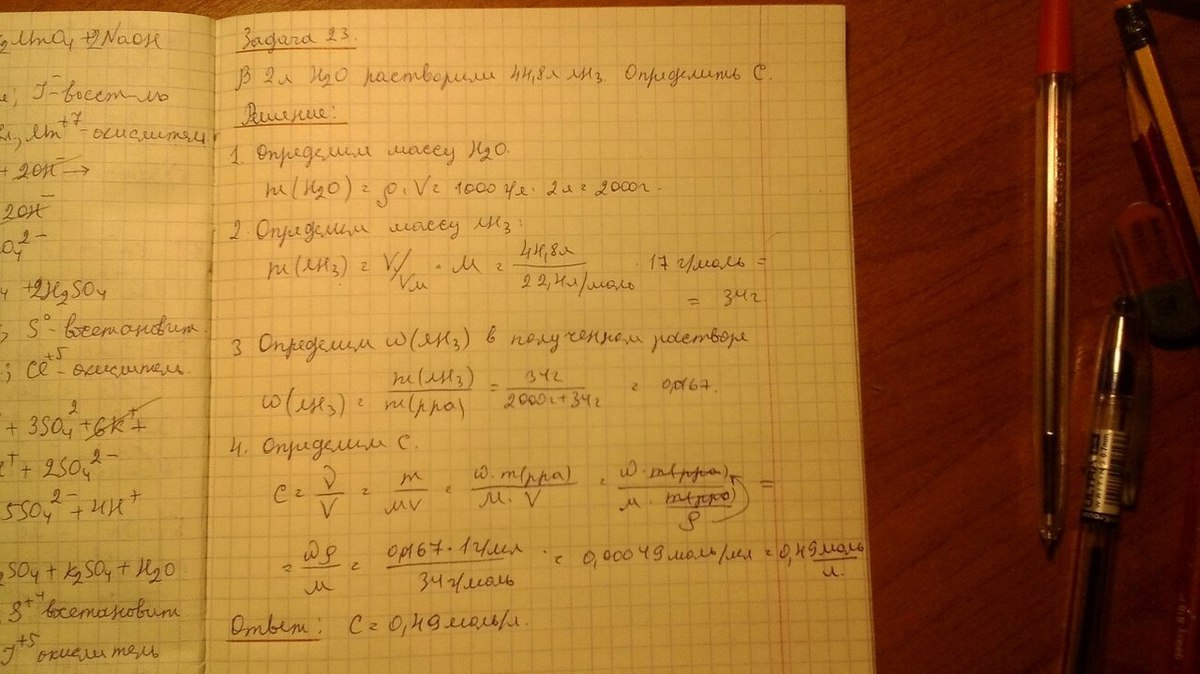 ₂MnO₄ + 2NaOH
J⁻ - восст-ль
Mn⁺⁷ - окислител
+ 2OH⁻ →
2OH⁻
O₄²⁻
+ 2H₂SO₄
S⁰ - восстановит.
Cl⁺⁵ - окислитель.
+ 3SO₄² + 6K⁺ +
+ 2SO₄²⁻
5SO₄²⁻ + 4H⁺
₂SO₄ + K₂SO₄ + H₂O
S⁺⁴ восстановит.
J⁺⁵ окислитель
Задача 23.
В 2л H₂O растворили 44,8л NH₃. Определить С.
Решение:
1. Определим массу H₂O.
m(H₂O) = ρ·V = 1000 г/л · 2л = 2000г.
2. Определим массу NH₃:
m(NH₃) = V/Vм · M = 44,8л / 22,4л/моль · 17 г/моль =
= 34г.
3 Определим ω(NH₃) в полученном растворе
ω(NH₃) = m(NH₃) / m(рра) = 34г / 2000г+34г = 0,0167.
4. Определим С.
C = ν/V = m/MV = ω·m(рра) / M·V = ω·m(рра) / M · m(рра)/ρ =
= ωρ/M = 0,0167·1г/мл / 34г/моль = 0,00049моль/мл = 0,49моль/л.
Ответ: С = 0,49моль/л.